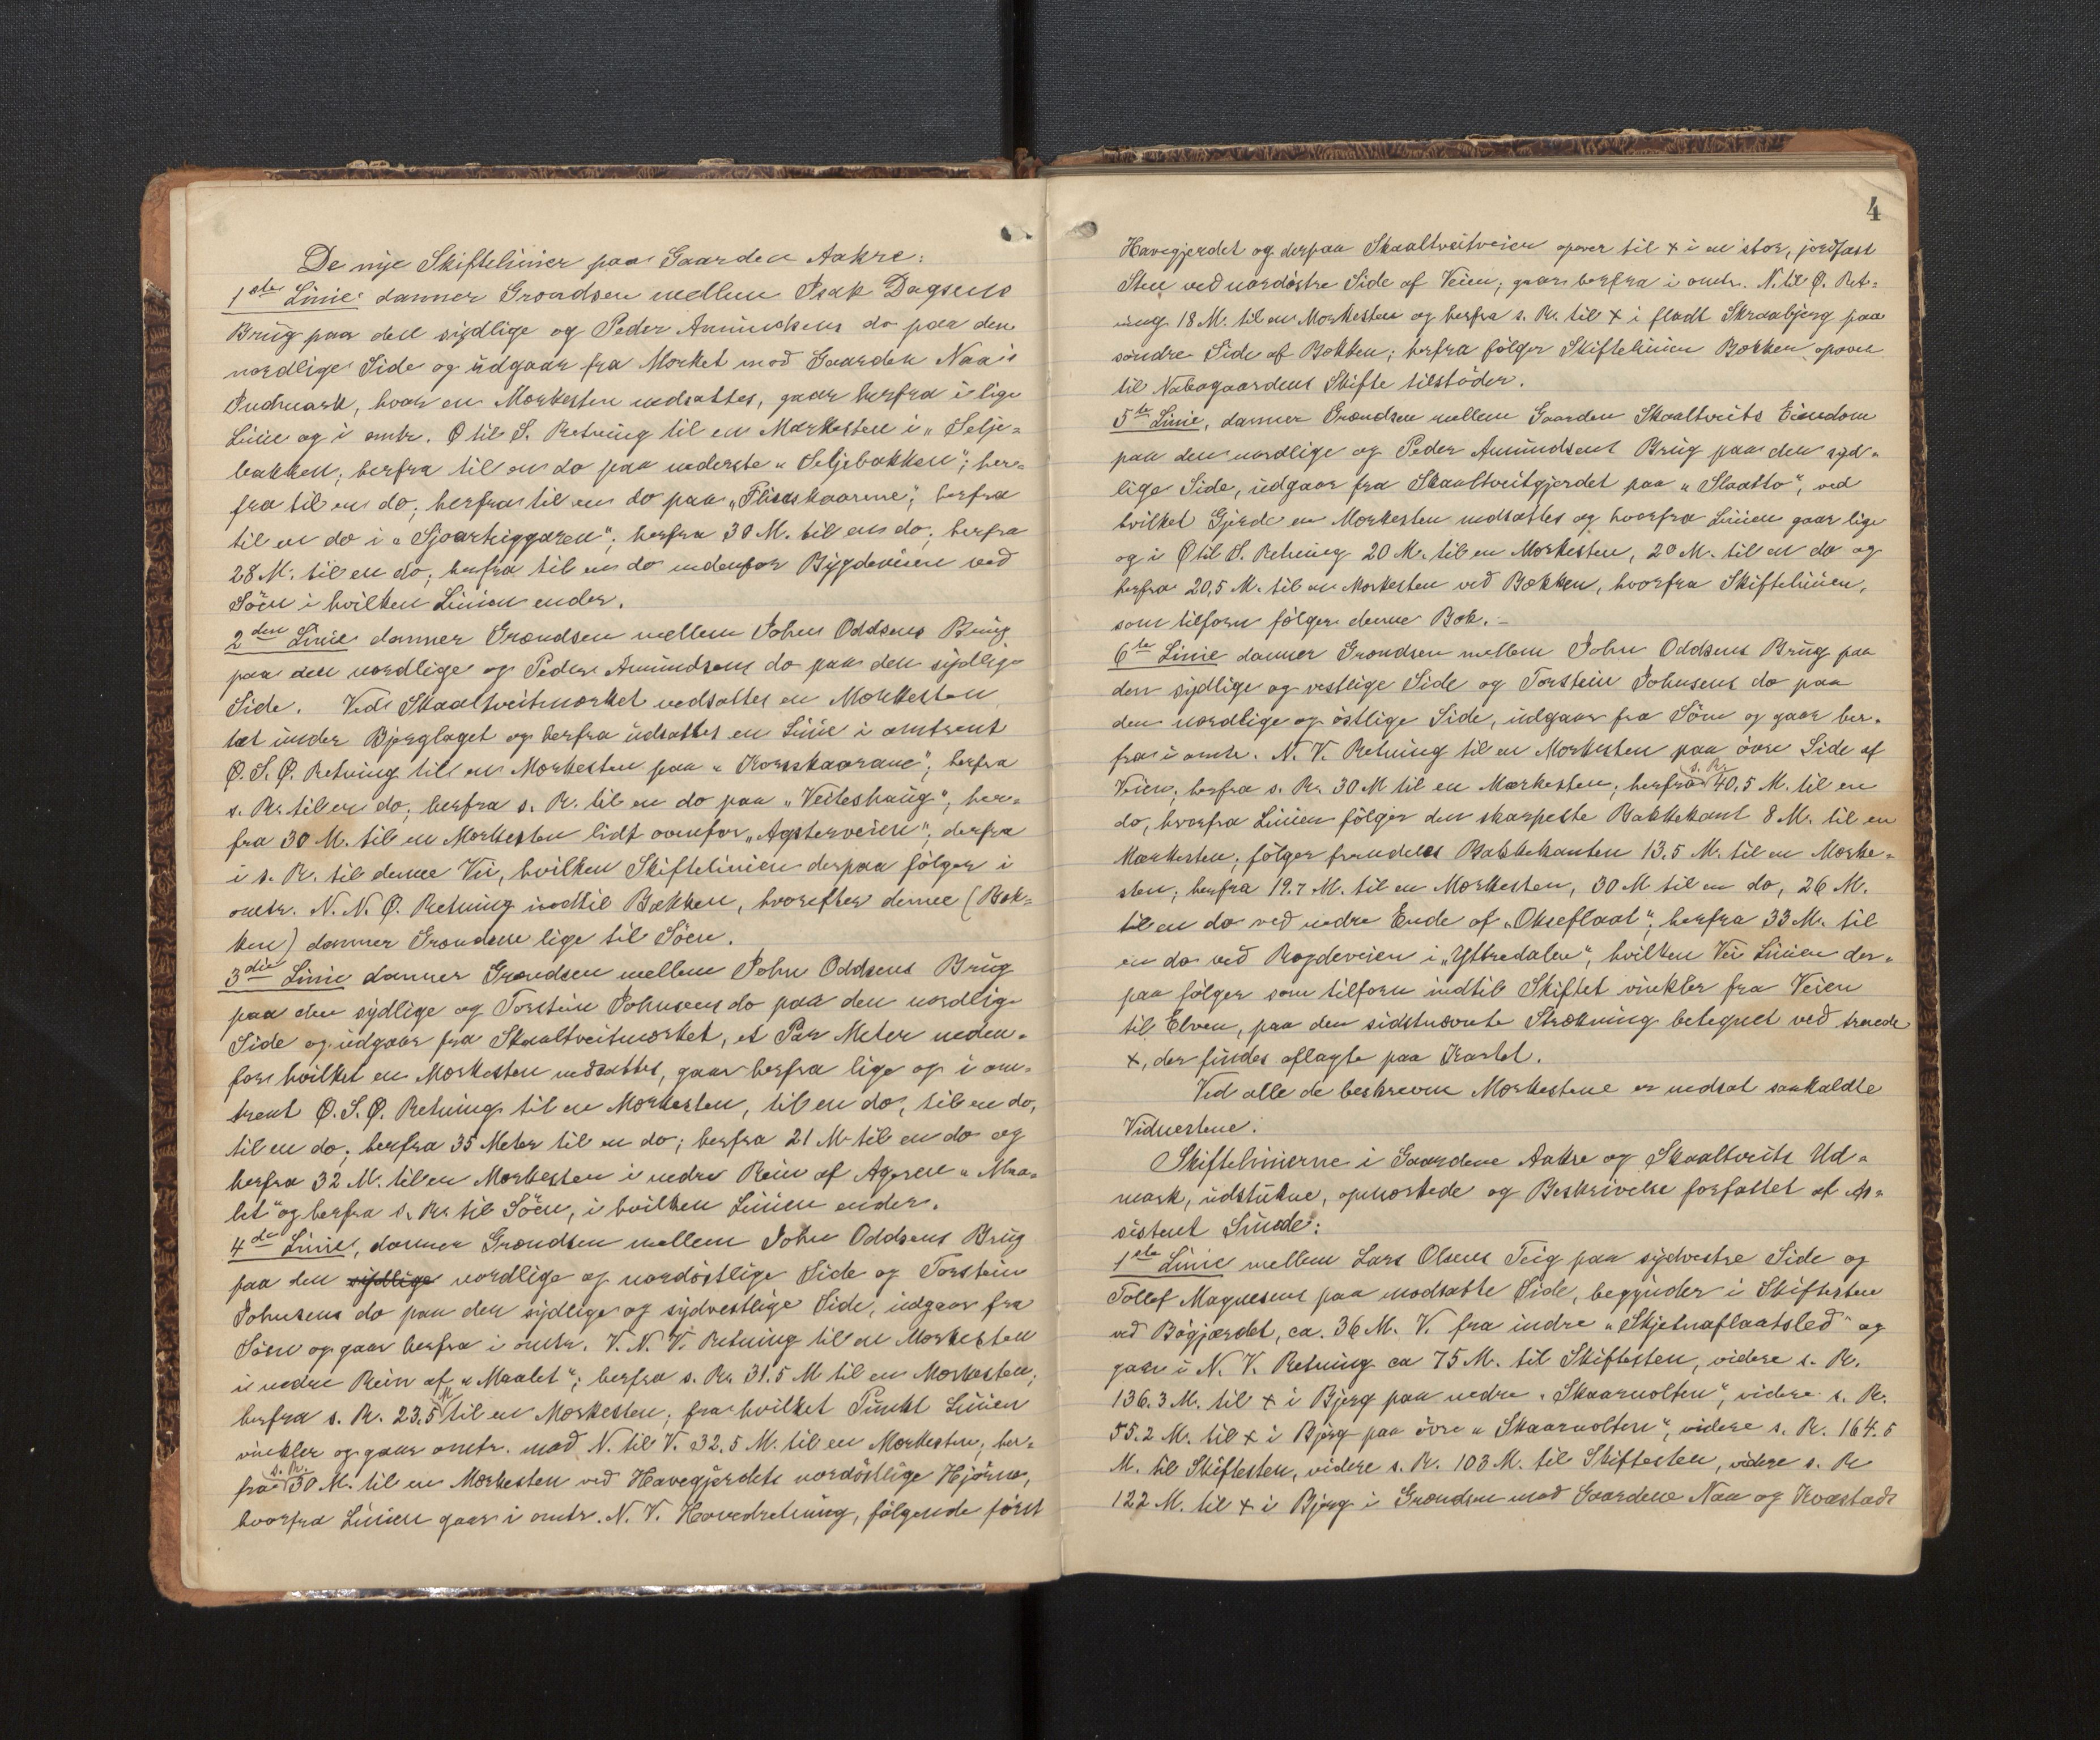 De nye Skiftelinier paa Gaarden Aakre:
1ste Linie danner Grændsen mellem Isak Dagsens
Brug paa den sydlige og Peder Amundsens do paa den
nordlige Side og udgaar fra Mærket mod Gaarden Naa's
Indmark, hvor en Mærkesten nedsættes, gaar herfra i lige
Linie og i omtr. Ø til S. Retning til en Mærkesten i „Selje-
bakken; herfra til en do paa nederste „Seljebakken“; her-
fra til en do; herfra til en do paa „Flisaskaarene“; herfra
til en do i „Sjoarhiggaren“; herfra 30 M. til en do; herfra
28 M. til en do; herfra til en do nedenfor Bygdeveien ved
Söen i hvilken Linien ender.
2den Linie danner Grændsen mellem John Oddsens Brug
paa den nordlige og Peder Amundsens do paa den sydlige
Side. Ved Skaaltveitmærket nedsættes en Mærkesten
tæt under Bjerglaget og herfra udsættes en Linie i omtrent
Ø. S. Ø. Retning til en Mærkesten paa „Korsskaarane“; herfra
s. R. til en do, herfra s. R. til en do paa „Veiteshaug“; her-
fra 30 M. til en Mærkesten lidt ovenfor „Agsterveien“; derfra
i s. R. til denne Vei, hvilken Skiftelinien derpaa følger i
omtr. N. N. Ø. Retning indtil Bækken, hvorefter denne (Bæk-
ken) danner Grændsen lige til Söen.
3die Linie danner Grændsen mellem John Oddsens Brug
paa den sydlige og Torstein Johnsens do paa den nordlige
Side og udgaar fra Skaaltveitmærket, et Par Meter neden-
for hvilket en Mærkesten nedsættes, gaar herfra lige og i om-
trent Ø. S. Ø. Retning til en Mærkesten, til en do, til en do,
til en do; herfra 35 Meter til en do; herfra 21 M til en do og
herfra 32 M. til en Mærkesten i nedre Rein af Ageren „Maa-
let“ og herfra s. R. til Söen, i hvilken Linien ender.
4de Linie, danner Grændsen mellem John Oddsens Brug
paa den sydlige nordlige og nordöstlige Side og Torstein
Johnsens do paa den sydlige og sydvestlige Side, udgaar fra
Söen og gaar herfra i omtr. V. N. V. Retning til en Mærkesten
i nedre Rein af „Maalet“; herfra s. R. 31.5 M til en Mærkesten;
herfra s. R. 23.5 M til en Mærkesten; fra hvilket Punkt Linien
vinkler og gaar omtr. mod N. til V. 32.5 M. til en Mærkesten, her-
fra s. R. 30 M. til en Mærkesten ved Havegjärdets nordöstlige Hjörne,
hvorfra Linien gaar i omtr. N. V. Hovedretning, fölgende först
4
Havegjerdet og derpaa Skaaltveitveien opover til x i en stor, jordfast
Sten ved nordöstre Side af Veien; gaar herfra i omtr. N. til Ø. Ret-
ning 18 M. til en Mærkesten og herfra s. R. til x i fladt Skraabjerg paa
söndre Side af Bækken; herfra fölger Skiftelinien Bækken opover
til Nabogaardens Skifte tilstöder.
5te Linie, danner Grændsen mellem Gaarden Skaaltveits Eiendom
paa den nordlige og Peder Amundsens Brug paa den syd-
lige Side, udgaar fra Skaaltveitgjerdet paa „Slaatto“, ved
hvilket Gjerde en Mærkesten nedsættes og hvorfra Linien gaar lige
og i Ø til S. Retning 20 M. til en Mærkesten, 20 M. til en do og
herfra 20,5 M. til en Mærkesten ved Bækken, hvorfra Skiftelinien,
som tilforn fölger denne Bæk. –
6te Linie danner Grændsen mellem John Oddsens Brug paa
den sydlige og vestlige Side og Torstein Johnsens do paa
den nordlige og östlige Side, udgaar fra Söen og gaar her-
fra i omtr. N. V. Retning til en Mærkesten paa övre Side af
Veien, herfra s. R. 30 M til en Mærkesten; herfra s. R. 40,5 M. til en
do, hvorfra Linien fölger den skarpeste Bakkekant 8 M. til en
Mærkesten; fölger fremdeles Bakkekanten 13.5 M. til en Mærke-
sten; herfra 19.7 M. til en Mærkesten, 30 M til en do, 26 M.
til en do ved nedre Ende af „Okseflaat“; herfra 33 M. til
en do ved Rogdeveien i „Yttredalen“, hvilken Vei Linien der-
paa fölger som tilforn indtil Skiftet vinkler fra Veien
til Elven, paa den sidstnævnte Strækning betegnet ved trende
x, der findes aflagte paa Kartet.
Ved alle de beskrevne Mærkestene er nedsat saakaldte
Vidnestene.
Skiftelinierne i Gaardene Aakre og Skaaltveits Ud-
mark, udstukne, opmærkede og Beskrivelse forfattet af As-
sistent Sunde:
1ste Linie mellem Lars Olsens Teig paa sydvestre Side og
Tollef Magnesens paa modsatte Side, begynder i Skiftesten
ved Bögjærdet, ca. 36 M. V. fra indre „Skjetnaflaatsled“ og
gaar i N. V. Retning ca 75 M. til Skiftesten, videre s. R.
136.3 M. til x i Bjerg paa nedre „Skaarnolten“, videre s. R.
55.2 M. til x i Bjerg paa övre „Skaarnolten“, videre s. R. 164.5
M. til Skiftesten, videre s. R. 103 M. til Skiftesten, videre s. R
122 M. til x i Bjerg i Grændsen mod Gaardene Naa og Kvæstad